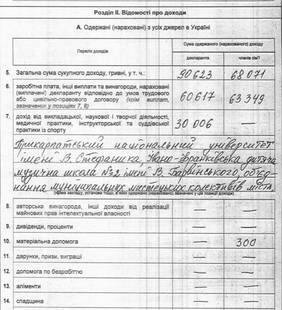 Розділ II. Відомості про доходи
А. Одержані (нараховані) з усіх джерел в Україні
Перелік доходів
Сума одержаного (нарахованого) доходу
декларанта
членів сім'ї
5. Загальна сума сукупного доходу, гривні, у т. ч.: 90623 68071
6. заробітна плата, інші виплати та винагороди, нараховані
(виплачені) декларанту відповідно до умов трудового
або цивільно-правового договору (крім виплат,
зазначених у позиціях 7, 8) 60617 63349
7. дохід від викладацької, наукової і творчої діяльності,
медичної практики, інструкторської та суддівської
практики із спорту 30006 —
Прикарпатський національний університет
імені В. Стефаника, Івано-Франківська дитяча
музична школа №2 імені В. Барвінського, обʼєд-
нання муніципальних мистецьких колективів міста
8. авторська винагорода, інші доходи від реалізації
майнових прав інтелектуальної власності — —
9. дивіденди, проценти — —
10. матеріальна допомога — 300
11. дарунки, призи, виграші — —
12. допомога по безробіттю — —
13. аліменти — —
14. спадщина — —